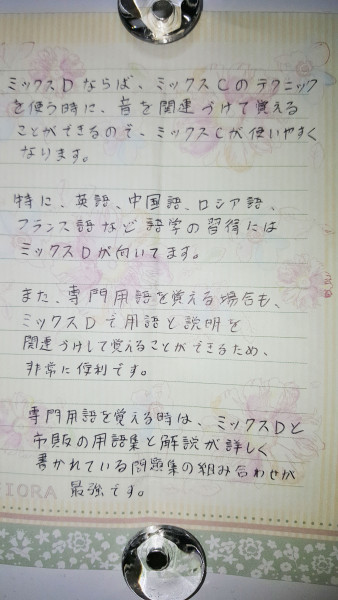 ミックスDならば、ミックスCのテクニック
を使う時に、音を関連づけて覚える
ことができるので、ミックスCが使いやすく
なります。
特に、英語、中国語、ロシア語、
フランス語など語学の習得には
ミックスDが向いてます。
また、専門用語を覚える場合も、
ミックスDで用語と説明を
関連づけして覚えることができるため、
非常に便利です。
専門用語を覚える時は、ミックスDと
市販の用語集と解説が詳しく
書かれている問題集の組み合わせが
最強です。
FIORA